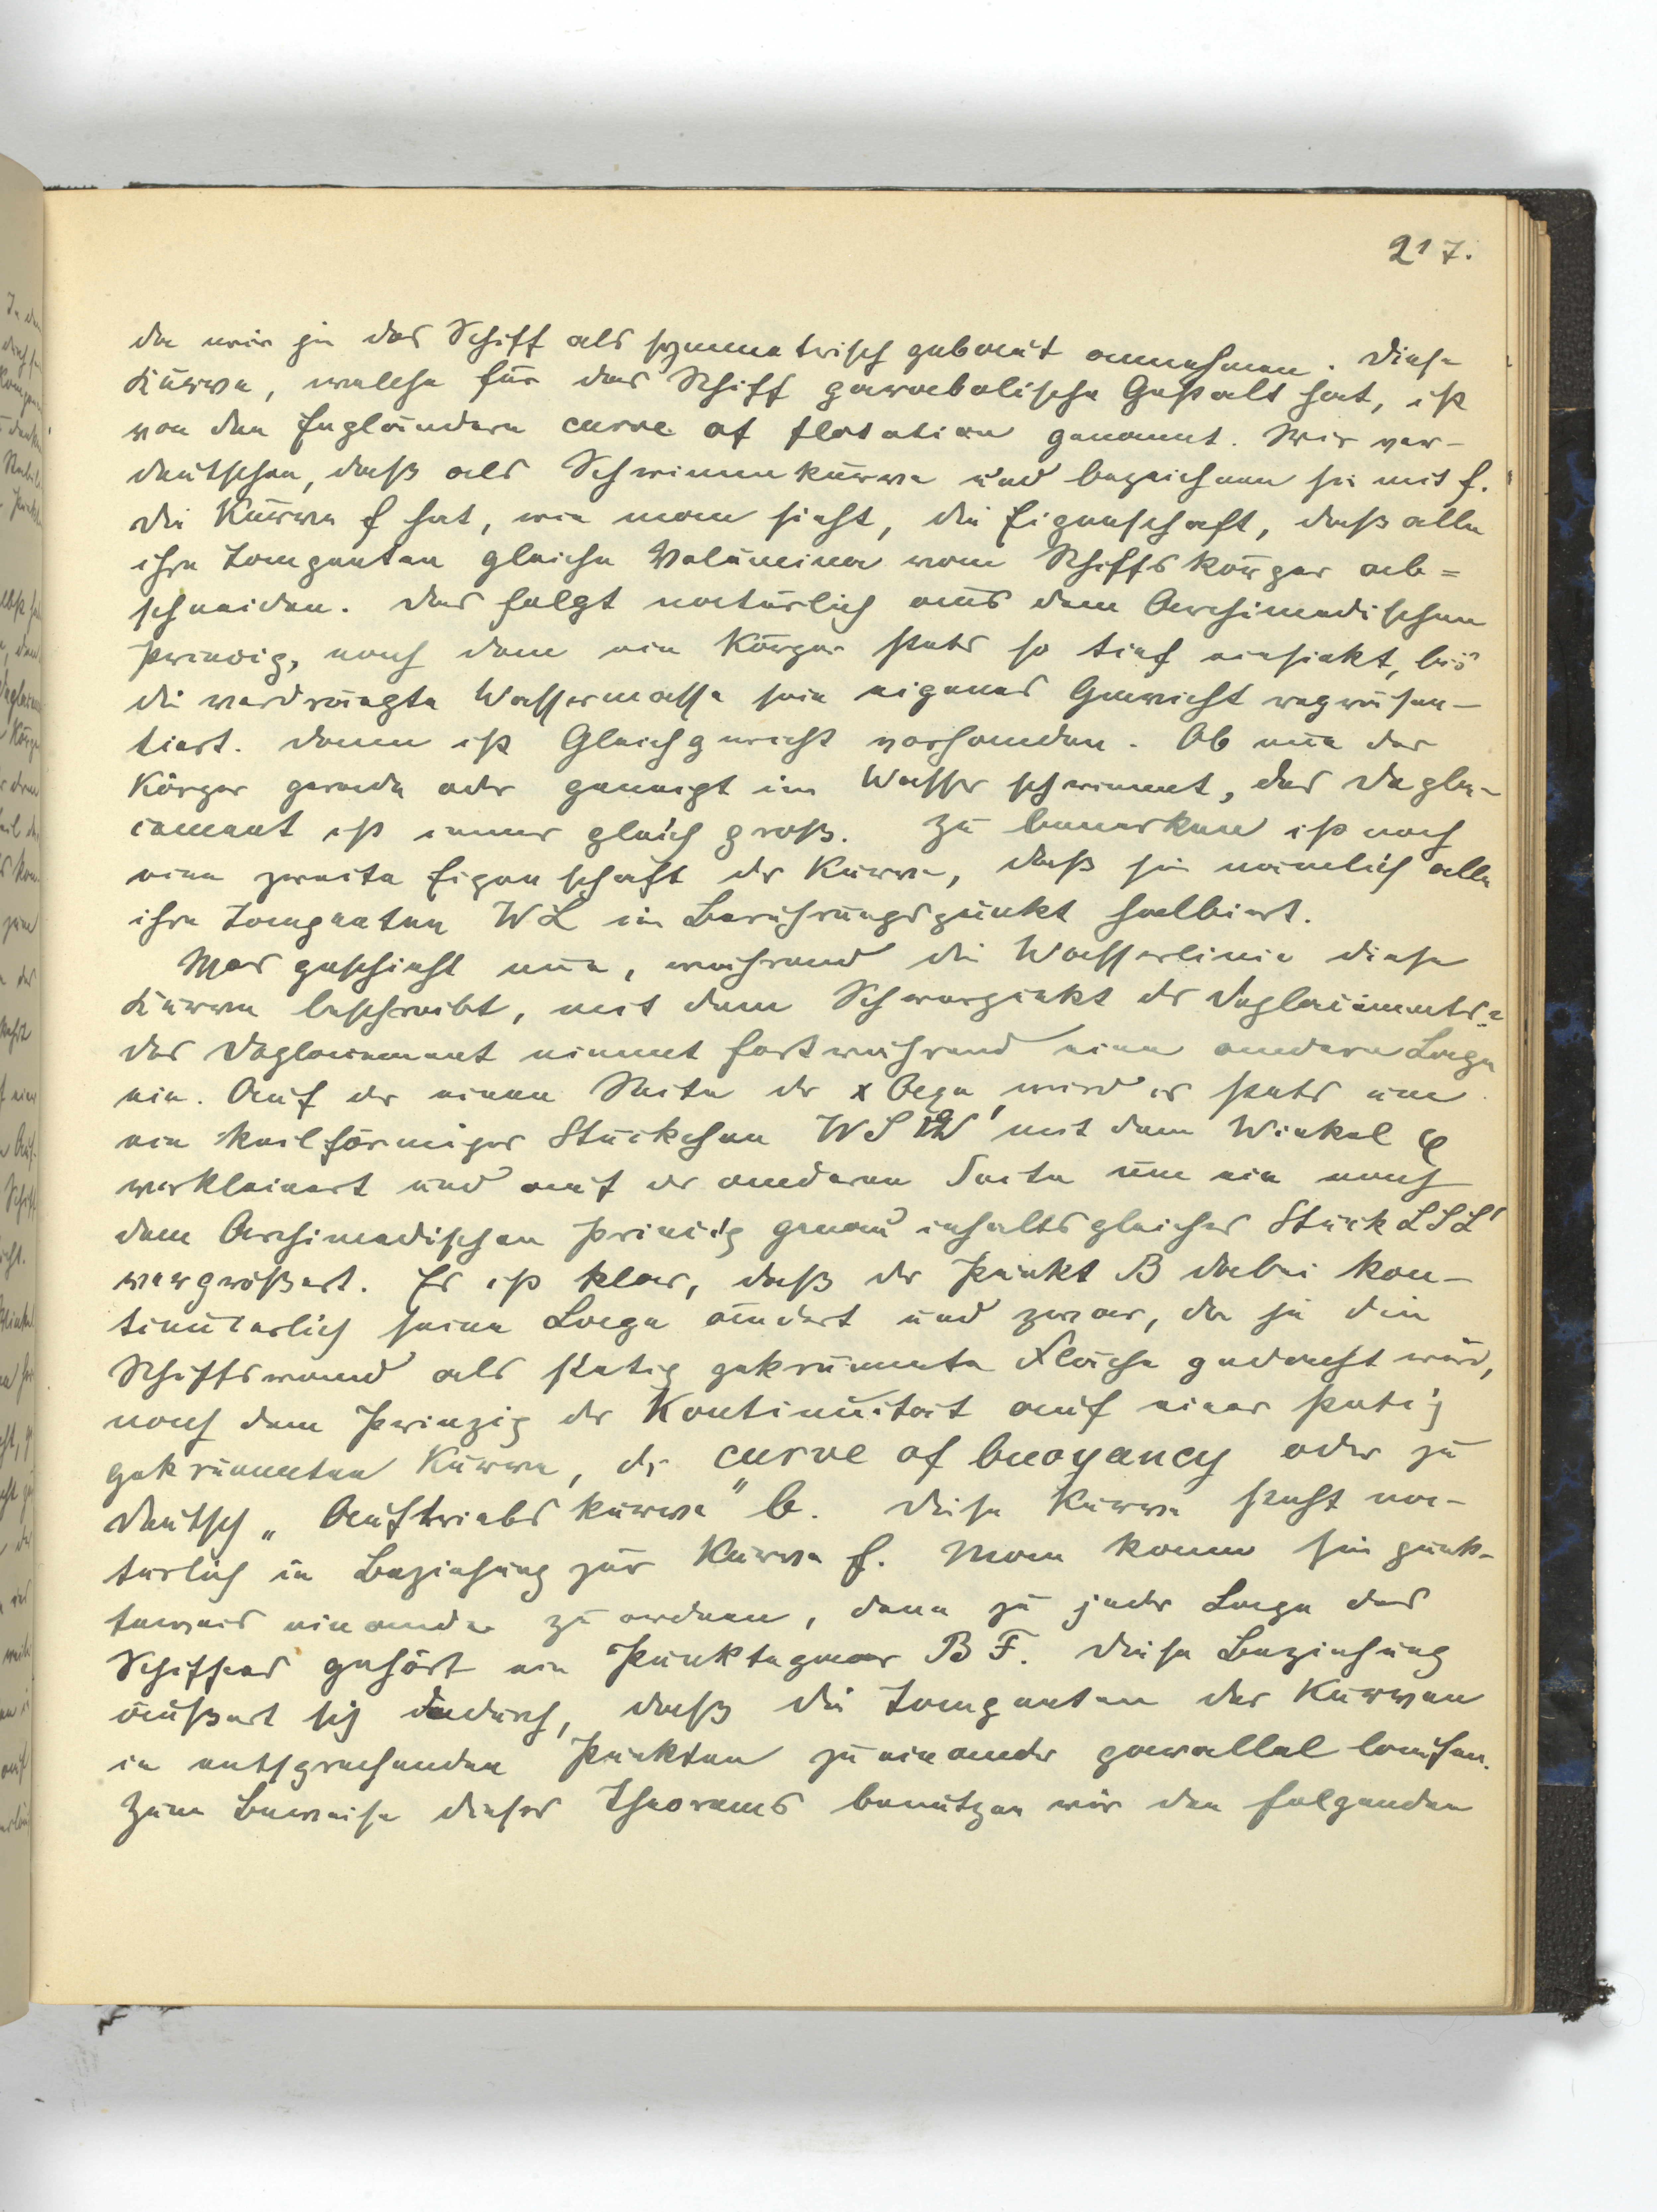 217.
da wir ja das Schiff als symmetrisch gebaut annehmen. Diese
Kurve, welche für das Schiff parabolische Gestalt hat, ist
von den Engländern curve of flotation genannt. Wir ver-
deutschen, daß als Schwimmkurve und bezeichnen sie mit f.
Die Kurve f hat, wie man sieht, die Eigenschaft, daß alle
ihre Tangenten gleiche Volumina vom Schiffskörper ab=
schneiden. Das folgt natürlich aus dem Archimedischen
Prinzip, nach dem ein Körper stets so tief einsinkt, bis
die verdrängte Wassermasse sein eigenes Gewicht repräsen-
tiert. Dann ist Gleichgewicht vorhanden. Ob nun der
Körper gerade oder geneigt im Wasser schwimmt, das Depla-
cement ist immer gleich groß. Zu bemerken ist noch
eine zweite Eigenschaft der Kurve, daß sie nämlich alle
ihre Tangenten WL im Berührungspunkt halbiert.
Was geschieht nun, während die Wasserlinie diese
Kurve beschreibt, mit dem Schwerpunkt des Deplacements?
das Deplacement nimmt fortwährend eine andere Lage
ein. Auf der einen Seite der x Axe wird es stets um
ein keilförmiges Stückchen WSW' mit dem Winkel φ
verkleinert und auf der anderen Seite um ein nach
dem Archimedischen Princip genau inhaltsgleiches Stück LSL'
vergrößert. Es ist klar, daß der Punkt B dabei kon-
tinuierlich seine Lage ändert und zwar, da ja die
Schiffswand als stetig gekrümmte Fläche gedacht wird,
nach dem Prinzip der Kontinuität auf einer stetig
gekrümmten Kurve, der curve of buoyancy oder zu
deutsch „Auftriebskurve" b. Diese Kurve steht na-
türlich in Beziehung zur Kurve f. Man kann sie punk-
teweis einander zu ordnen, denn zu jeder Lage des
Schiffes gehört ein Punktepaar B F. Diese Beziehung
äußert sich dadurch, daß die Tangenten der Kurven
in entsprechenden Punkten zu einander parallel laufen.
Zum Beweise dieses Theorems benutzen wir den folgenden